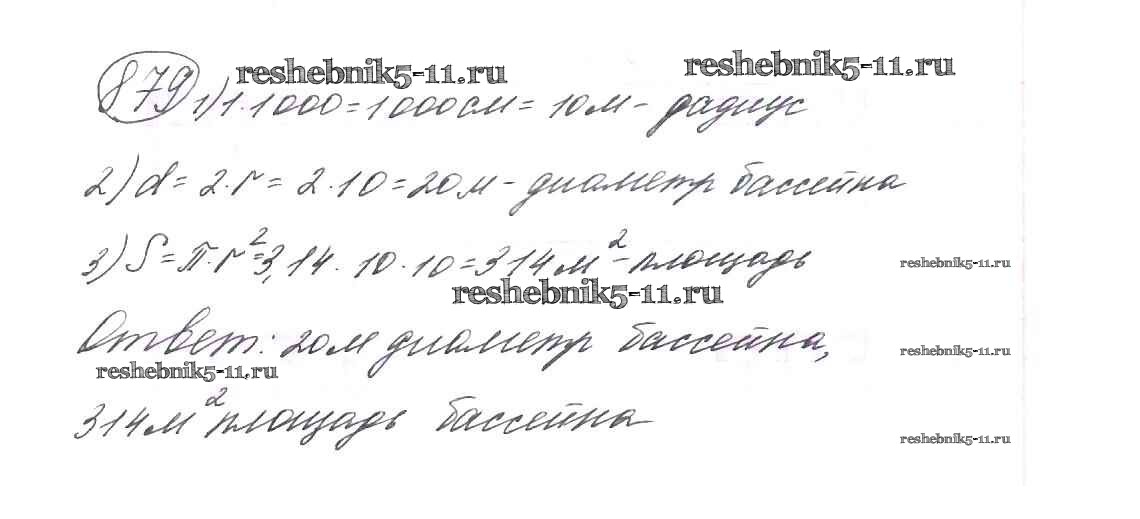 879 reshebnik5-11.ru reshebnik5-11.ru
1) 1·1000=1000см=10м- радиус
2) d=2·r=2·10=20м- диаметр бассейна
3) S=π·r²=3,14·10·10=314м²-площадь
reshebnik5-11.ru
reshebnik5-11.ru
Ответ: 20м диаметр бассейна,
reshebnik5-11.ru
reshebnik5-11.ru
314м² площадь бассейна
reshebnik5-11.ru